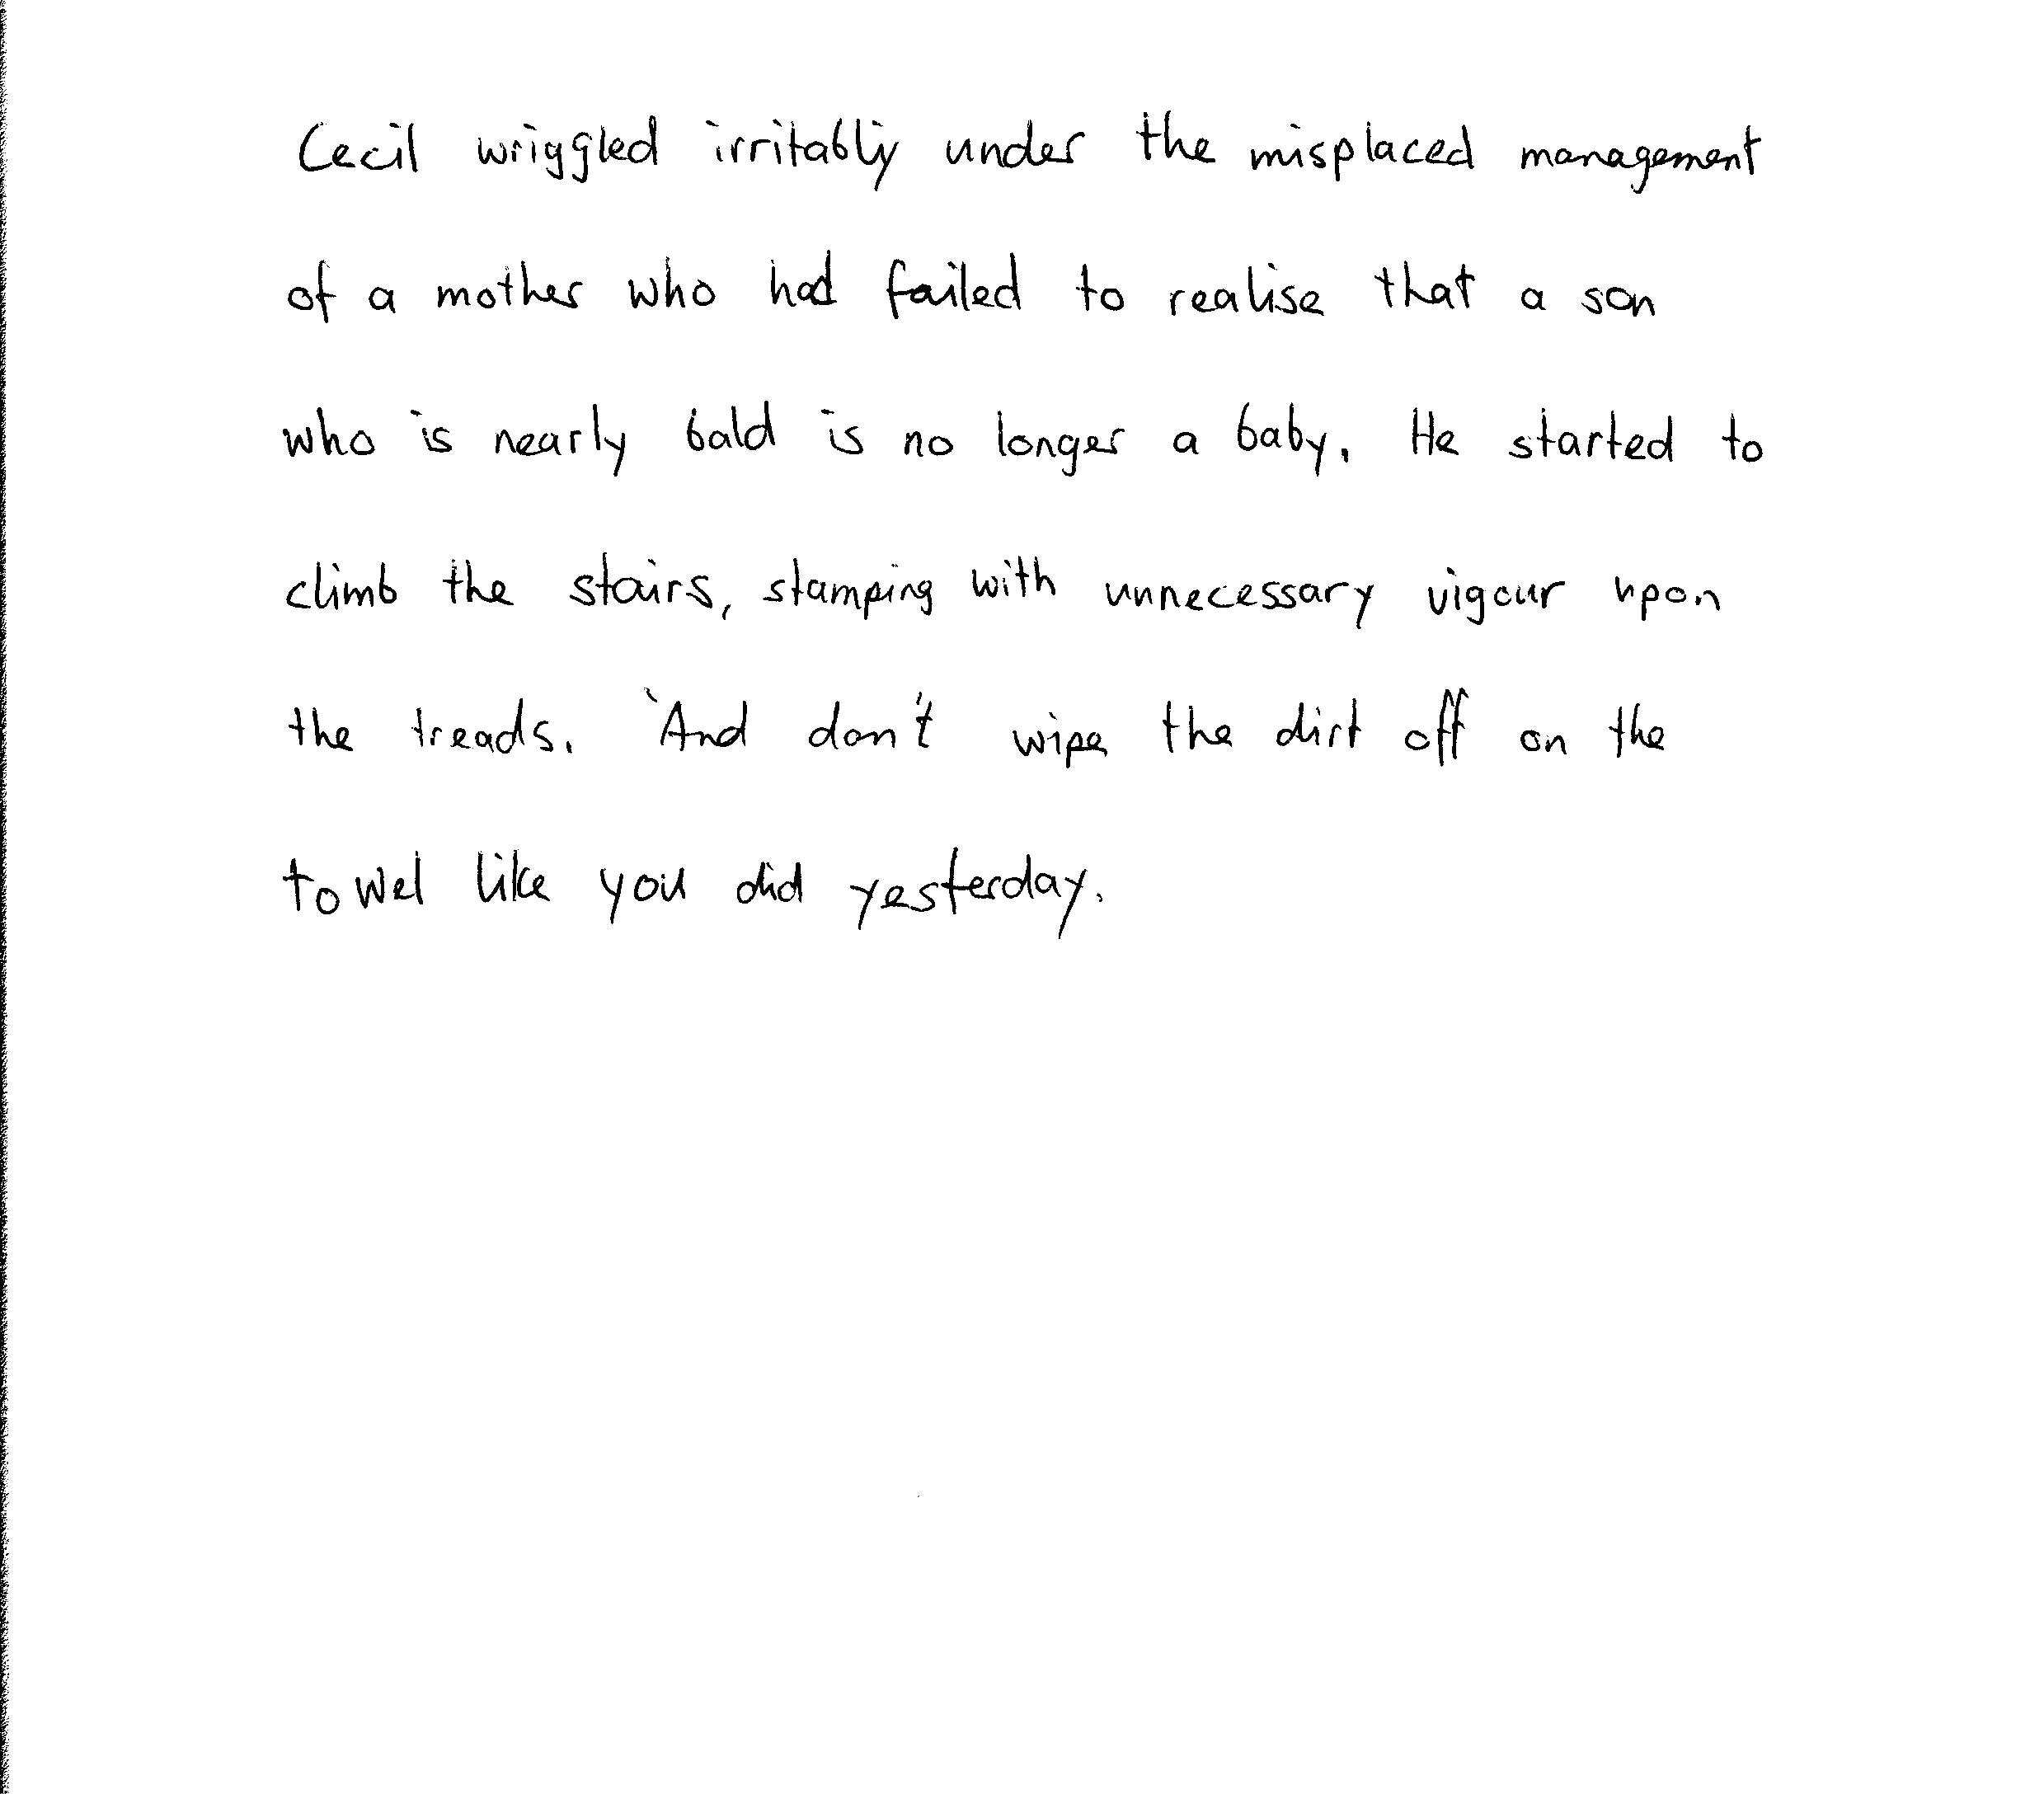 Cecil wriggled irritably under the misplaced management
of a mother who had failed to realise that a son
who is nearly bald is no longer a baby. He started to
climb the stairs, stamping with unnecessary vigour upon
the treads. 'And don't wipe the dirt off on the
towel like you did yesterday.